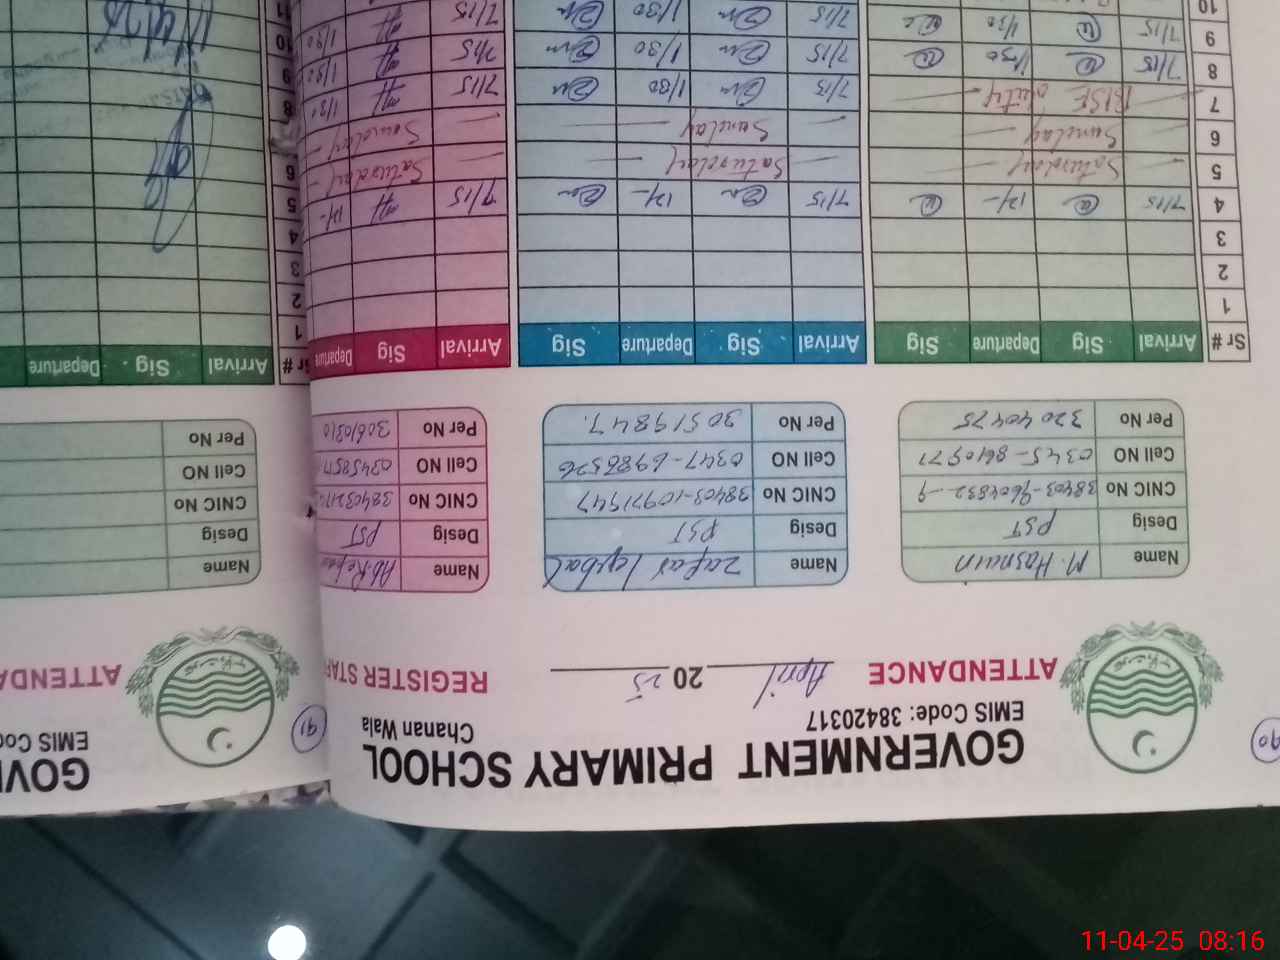 90
GOVERNMENT PRIMARY SCHOOL
EMIS Code: 38420317
Chanan Wala
ATTENDANCE April 2025 REGISTER STAF
Name M. Hasnain
Desig PST
CNIC No 38403-9604832-9
Cell NO 0345-8610971
Per No 32040475
Name Zafar Iqbal
Desig PST
CNIC No 38403-10971947
Cell NO 0347-6988326
Per No 30519847.
Name Ab.
Desig PST
CNIC No
Cell NO
Per No 30610810
Sr # Arrival Sig Departure Sig Arrival Sig Departure Sig Arrival Sig Departure
1
2
3
4 7/15 12/- 7/15 12/- 7/15 12/-
5 Saturday Saturday Saturday
6 Sunday Sunday Sunday
7 BISE duty 7/15 1/30 7/15 1/30
8 7/15 1/30 7/15 1/30 7/15 1/30
9 7/15 1/30 7/15 1/30 7/15 1/30
10
91
GOV
EMIS Co
ATTENDA
Name
Desig
CNIC No
Cell NO
Per No
Sr # Arrival Sig Departure
1
2
3
4
5
6
8
9
10
11
11-04-25 08:16